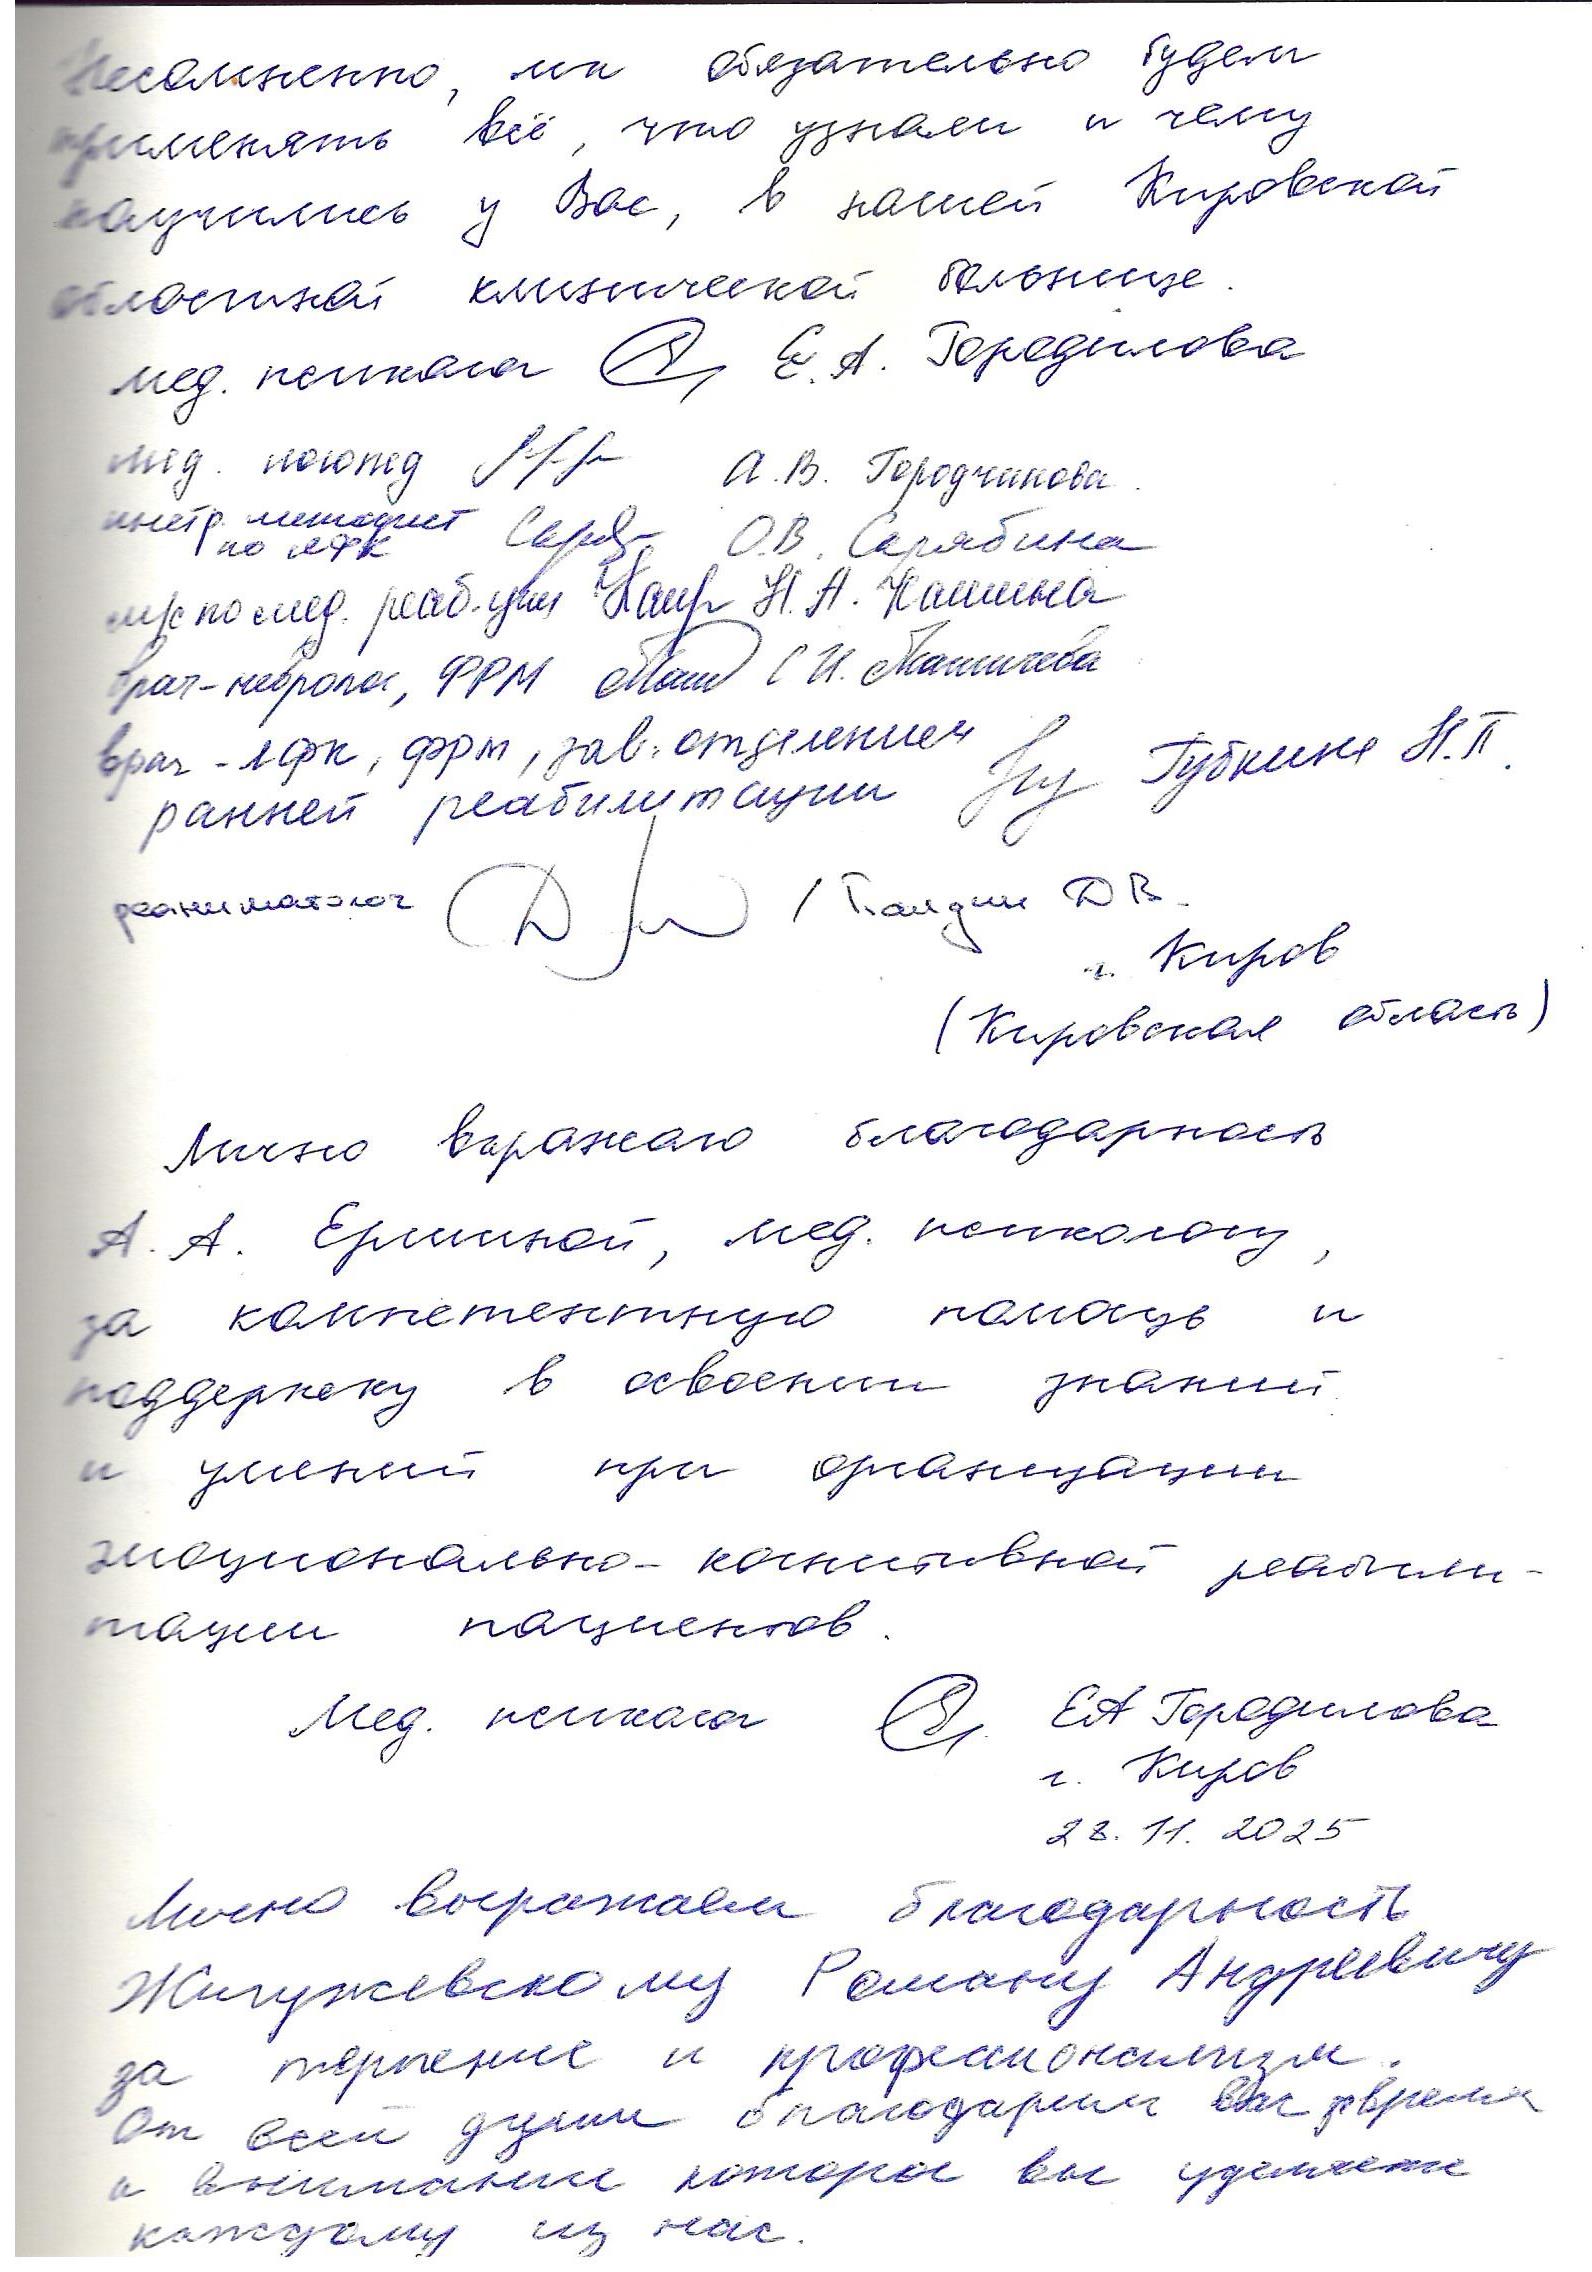 Несомненно, мы обязательно будем
применять всё, что узнали и чему
научились у Вас, в нашей Кировской
областной клинической больнице.
мед. психолог Е.А. Городилова
мед. А.В. Городчикова.
инстр. методист О.В. Скрябина
по ЛФК
м/с по мед. реаб-ции Н.А. Кашина
врач-невролог, ФРМ С.И.
врач-ЛФК, ФРМ, зав. отделением Губкина Н.П.
ранней реабилитации
реаниматолог / Д В.
г. Киров
(Кировская область)
Лично выражаю благодарность
А. А. Ершиной, мед. психологу,
за компетентную помощь и
поддержку в освоении знаний
и умений при организации
эмоционально-когнитивной реабили-
тации пациентов.
Мед. психолог ЕА Городилова
г. Киров
28.11.2025
Лично выражаем благодарность
Жигужевскому Роману Андреевичу
за терпение и профессионализм.
От всей души благодарим вас время
и внимание которое вы уделяете
каждому из нас.